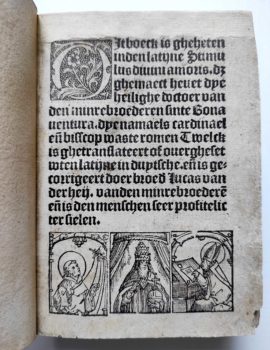 Dit boeck is gheheten
inden latyne Stimu
lus diuini amoris. dz
ghemaect heuet dye
heilighe doctoer van
den minrebroederen sinte Bona
uentura. dye namaels cardinael
eñ bisscop waste romen Twelck
is ghetranslateert of ouergheset
wten latyne in duytsche. eñ is ge
corrigeert doer broed Lucas van
der heij. vanden minrebroederẽ
eñ is den menschen seer profiteli
ter sielen.